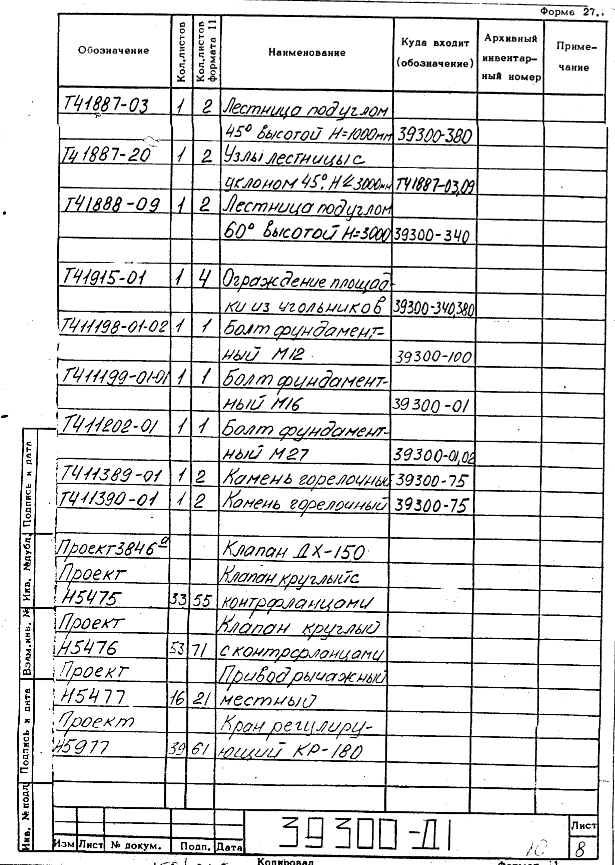 Форма 27
Обозначение Кол.листов Кол.листов формата 11 Наименование Куда входит (обозначение) Архивный инвентарный номер Примечание
Т41887-03 1 2 Лестница под углом
45° высотой Н=1000мм 39300-380
Т41887-20 1 2 Узлы лестницы с
уклоном 45°, Н≤3000мм Т41887-03,09
Т41888-09 1 2 Лестница под углом
60° высотой Н=3000 39300-340
Т41915-01 1 4 Ограждение площад-
ки из угольников 39300-340,380
Т411198-01-02 1 1 Болт фундамент-
ный М12 39300-100
Т411199-01-01 1 1 Болт фундамент-
ный М16 39300-01
Т411202-01 1 1 Болт фундамент-
ный М27 39300-01,02
Т411389-01 1 2 Камень горелочный 39300-75
Т411390-01 1 2 Камень горелочный 39300-75
Проект 3846а Клапан ДХ-150
Проект Клапан круглый с
Н5475 33 55 контрфланцами
Проект Клапан круглый
Н5476 53 71 с контрфланцами
Проект Привод рычажный
Н5477 16 21 местный
Проект Кран регулиру-
Н5977 39 61 ющий КР-180
Инв. № подл. Подпись и дата Взам.инв. № Инв. № дубл. Подпись и дата
39300-Д1
Лист
8
Изм Лист № докум. Подп. Дата
10
Копировал
Формат 11